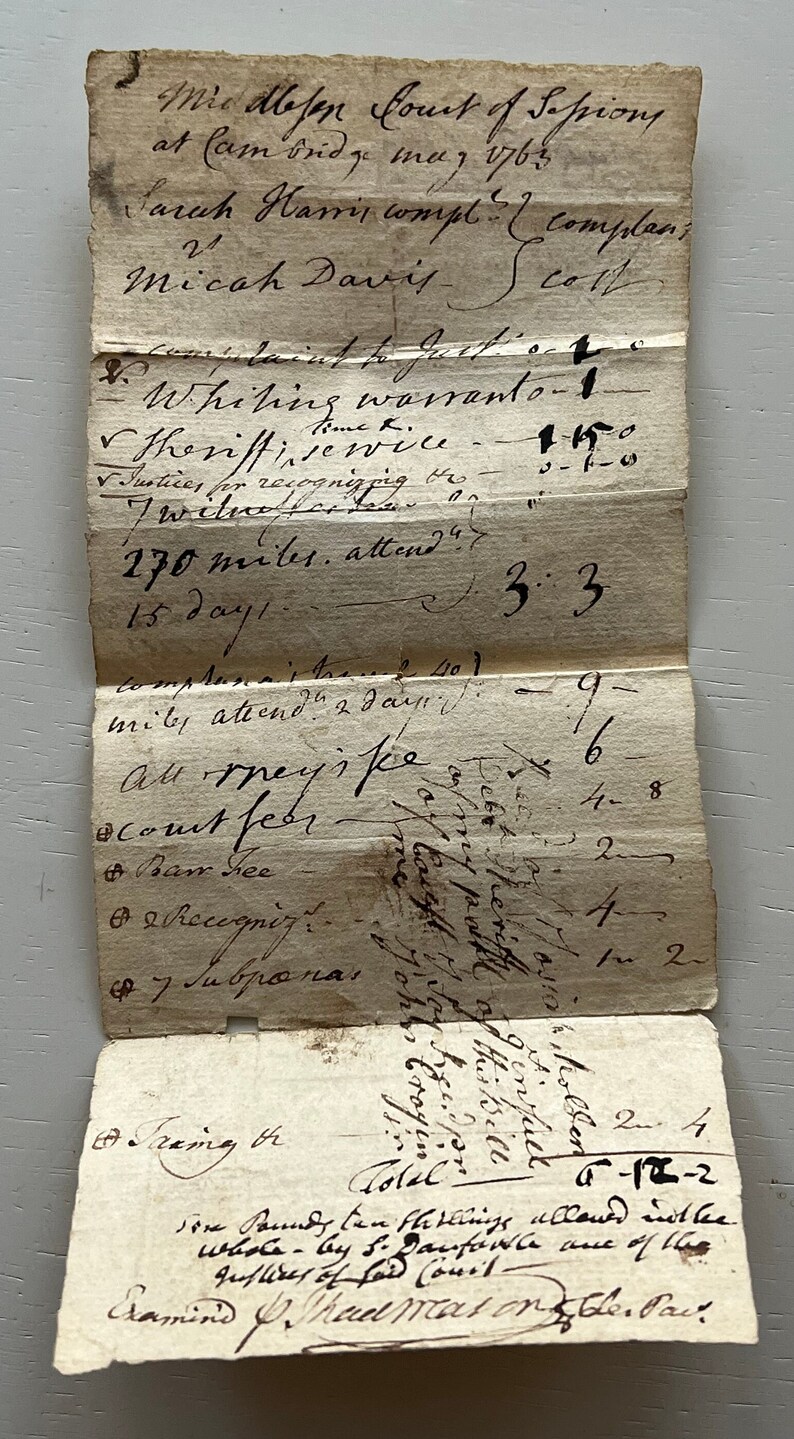 Middlesex Court of Sessions
at Cambridge may 1763
Sarah Harris complt } complans
vs
Micah Davis } cost
complaint to Justs 0-1-0
Whiting warrant 0-1-
Sheriffs service time &c. - 1-15-0
Justices for recognizing &c - 0-1-0
7 witnesses
270 miles. attendce
15 days - 3 : 3
complana's travel 40
miles attendce 2 days - 9 -
Atturney's fee 6 -
Court fees 4- 8
Barr Fee 2
2 Recognizs 4
7 Subpœnas 1 2
Taxing &c 2 4
Total 6-12-2
Six Pounds ten Shillings allowed in the
whole - by S. Danforth one of the
Justices of said Court
Examind p Thad Mason Cler Pac.
Recd of Josiah Holden
Debt Sheriff in full
of my part of this Bill
of Cost I say Recd pr
me John Crogin